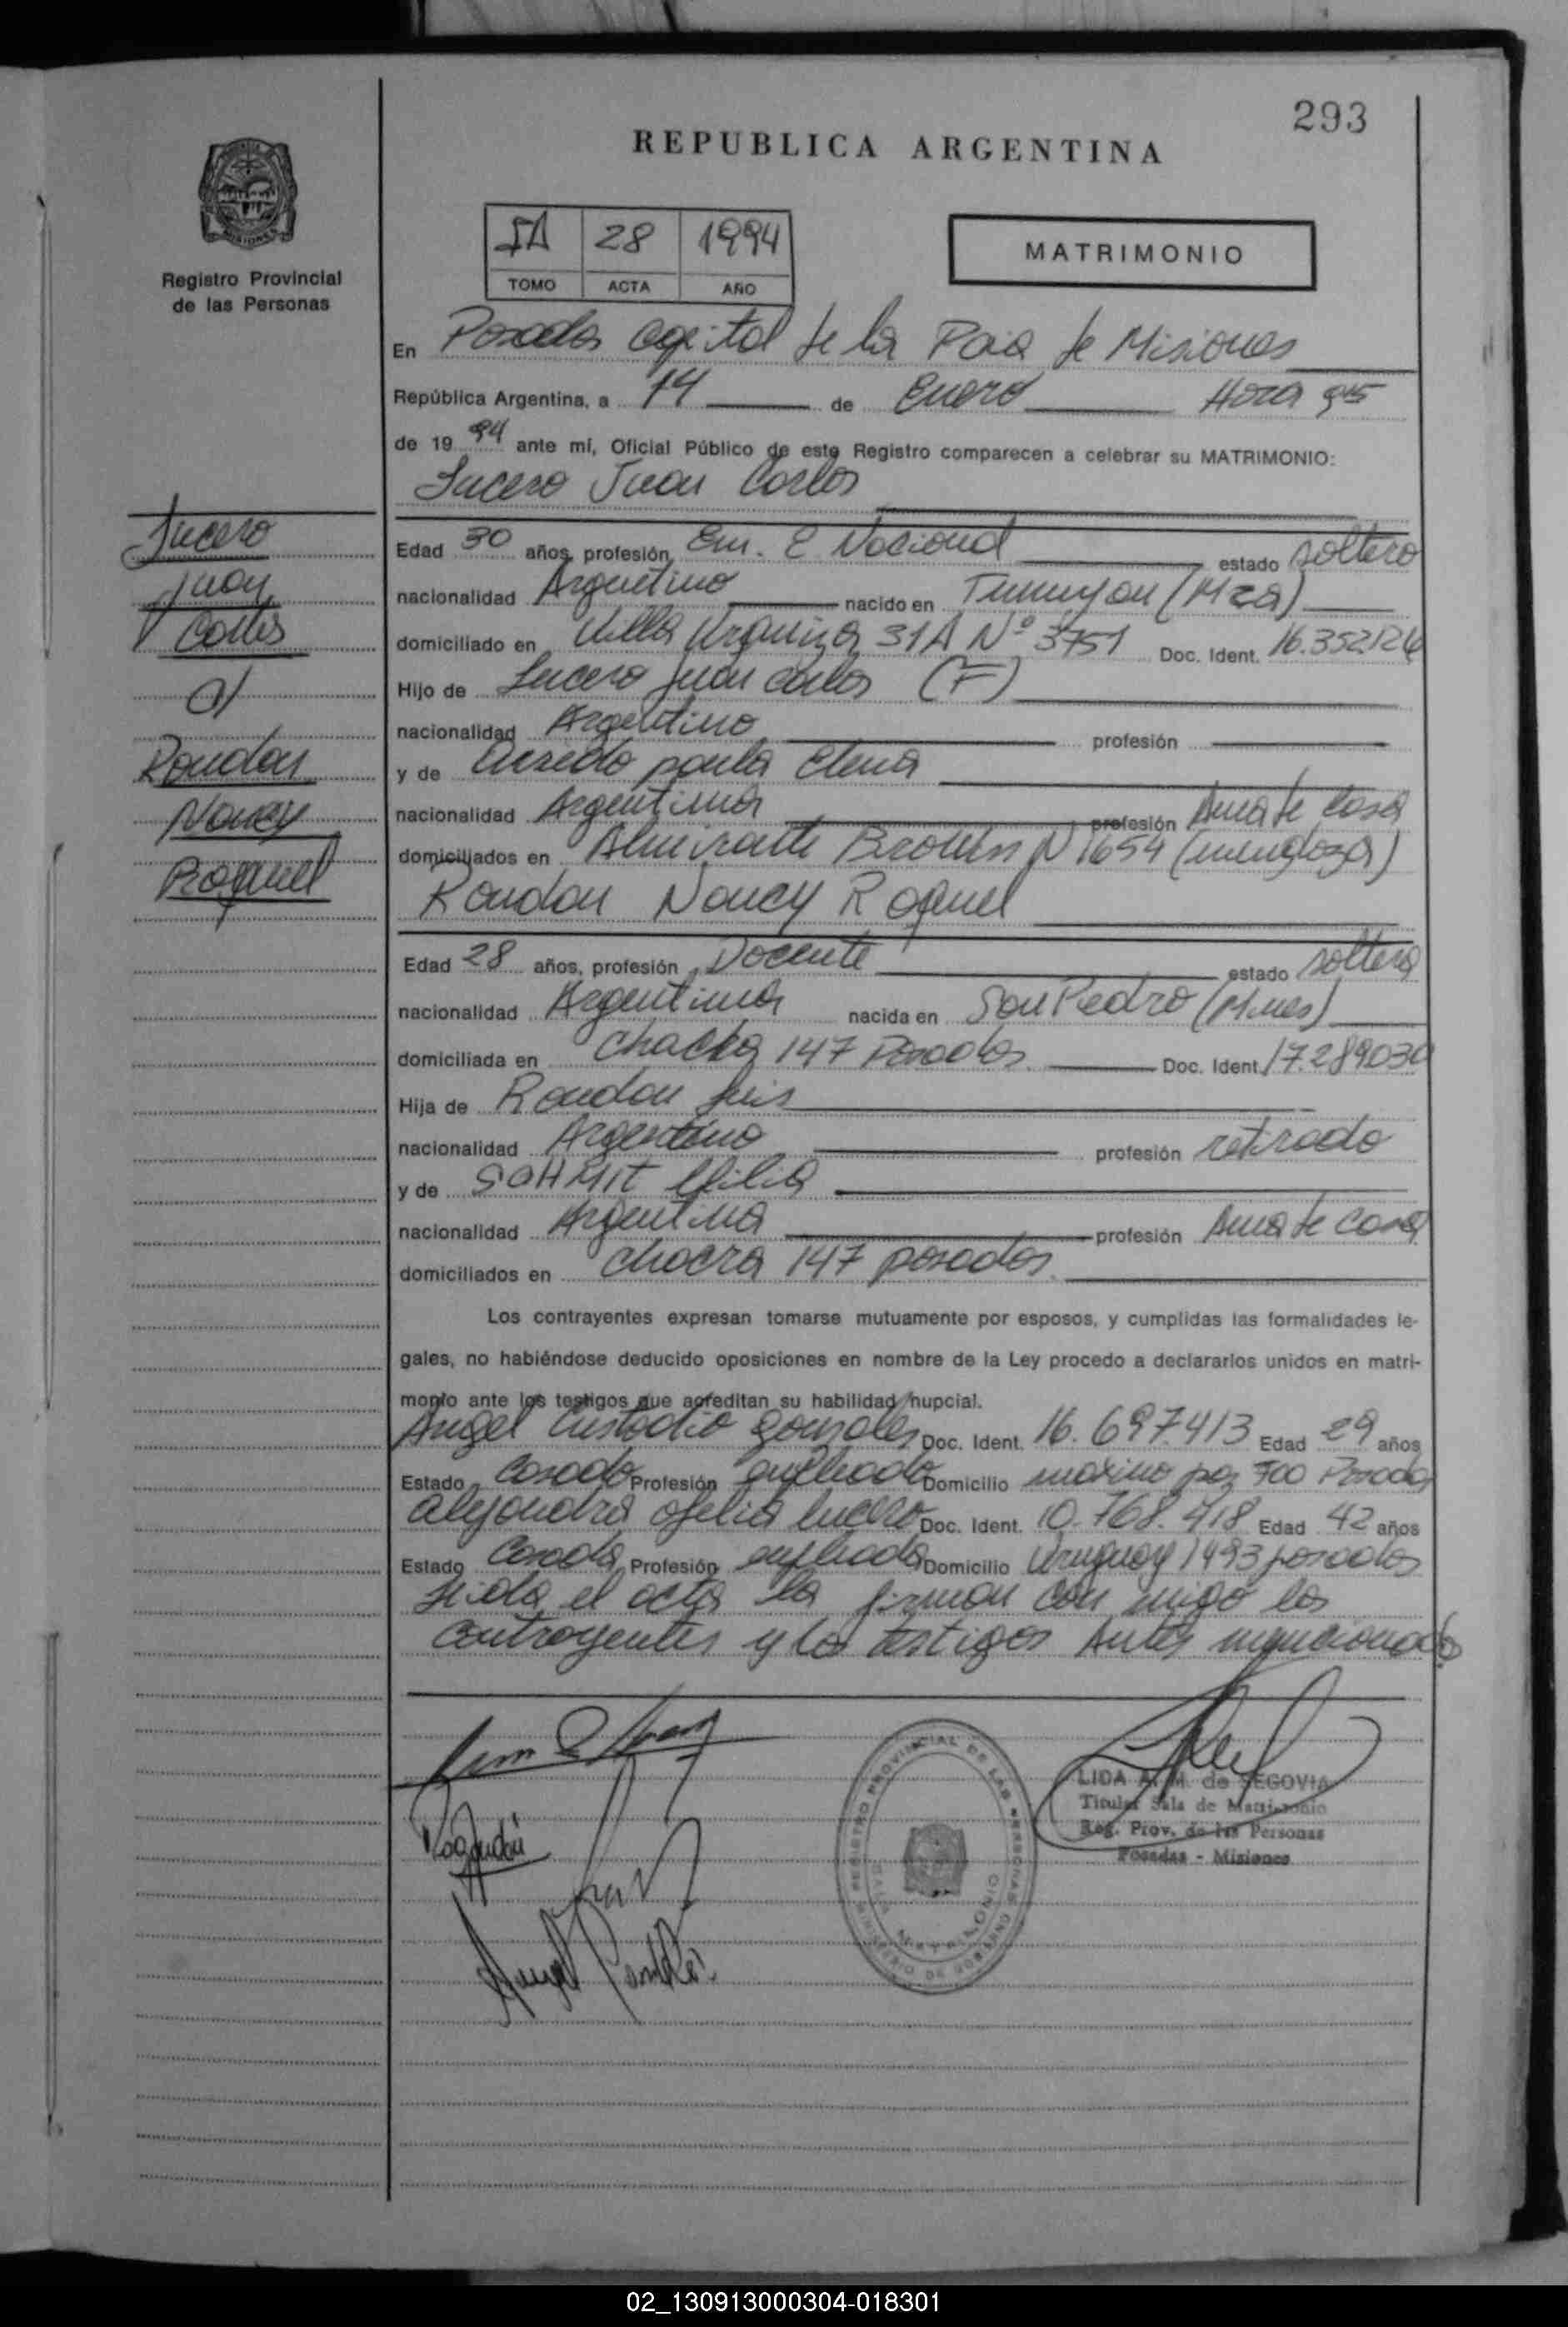 293
REPUBLICA ARGENTINA
Registro Provincial
de las Personas
28 1994
TOMO ACTA AÑO
MATRIMONIO
En Posadas capital de la Pcia de Misiones
República Argentina, a 14 de Enero Hora
de 1994 ante mí, Oficial Público de este Registro comparecen a celebrar su MATRIMONIO:
Lucero Juan Carlos
Lucero
Juan
Carlos
c/
Rondan
Nancy
Raquel
Edad 30 años, profesión Em. Nacional estado soltero
nacionalidad Argentino nacido en Tunuyan (Mza)
domiciliado en Villa Urquiza 31A Nº 3751 Doc. Ident. 16.352.126
Hijo de Lucero Juan Carlos (F)
nacionalidad Argentino profesión
y de paula Elena
nacionalidad Argentina profesión Ama de Casa
domiciliados en Almirante Brown N 1654 (mendoza)
Rondan Nancy Raquel
Edad 28 años, profesión Docente estado soltera
nacionalidad Argentina nacida en San Pedro (Mnes)
domiciliada en Chacra 147 Posadas Doc. Ident. 17.289.030
Hija de Rondan Luis
nacionalidad Argentino profesión retirado
y de SCHMIT
nacionalidad Argentina profesión Ama de Casa
domiciliados en Chacra 147 posadas
Los contrayentes expresan tomarse mutuamente por esposos, y cumplidas las formalidades le-
gales, no habiéndose deducido oposiciones en nombre de la Ley procedo a declararlos unidos en matri-
monio ante los testigos que acreditan su habilidad nupcial.
Angel Custodio Gonzales Doc. Ident. 16.697.413 Edad 29 años
Estado Casado Profesión empleado Domicilio paz 700 Posadas
Alejandra Ofelia Lucero Doc. Ident. 10.768.418 Edad 42 años
Estado Casada Profesión empleada Domicilio Uruguay 1493 posadas
Leida el acta la firman con migo los
contrayentes y los testigos Antes mencionados
REGISTRO PROVINCIAL DE LAS PERSONAS
MINISTERIO DE GOBIERNO
MATRIMONIO
LIDA A. M. de SEGOVIA
Titular Sala de Matrimonio
Reg. Prov. de las Personas
Posadas - Misiones
02_130913000304-018301